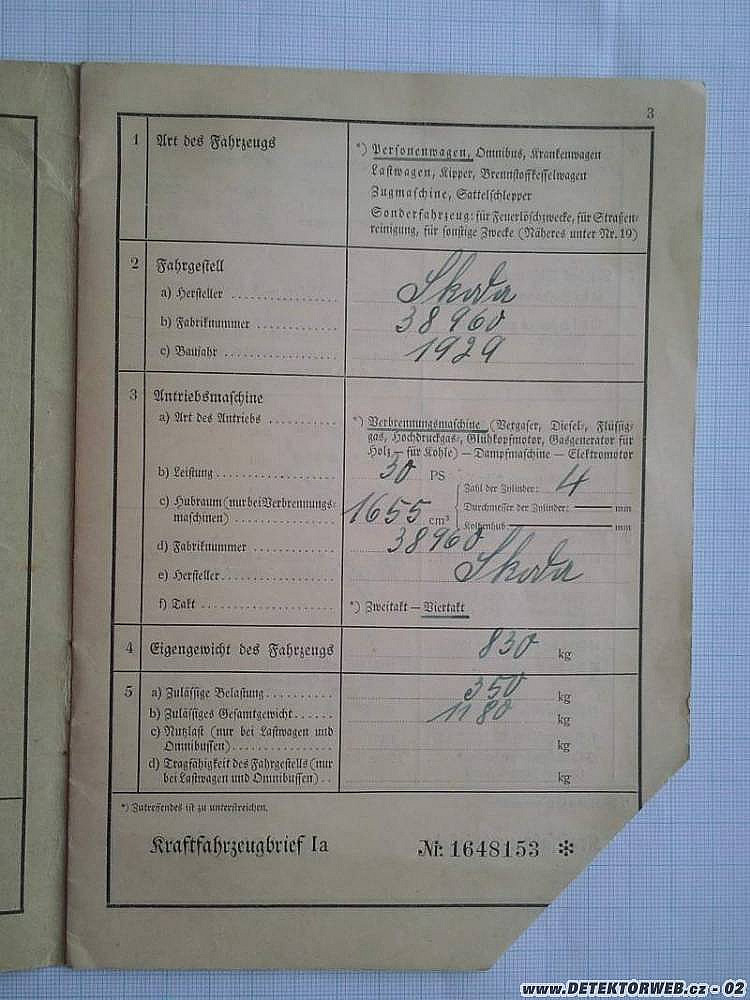 3
1 Art des Fahrzeugs
*) Personenwagen, Omnibus, Krankenwagen
Lastwagen, Kipper, Brennstoffkesselwagen
Zugmaschine, Sattelschlepper
Sonderfahrzeug: für Feuerlöschzwecke, für Straßen-
reinigung, für sonstige Zwecke (Näheres unter Nr. 19)
2 Fahrgestell
a) Hersteller .............. Skoda
b) Fabriknummer .............. 38960
c) Baujahr .............. 1929
3 Antriebsmaschine
a) Art des Antriebs ..........
*) Verbrennungsmaschine (Vergaser, Diesel-, Flüssig-
gas, Hochdruckgas-, Glühkopfmotor, Gasgenerator für
Holz — für Kohle) — Dampfmaschine — Elektromotor
b) Leistung .............. 30 PS
Zahl der Zylinder: 4
c) Hubraum (nur bei Verbrennungs-
maschinen) .............. 1655 cm³
Durchmesser der Zylinder: — mm
Kolbenhub — mm
d) Fabriknummer .............. 38960
e) Hersteller .............. Skoda
f) Takt .............. *) Zweitakt — Viertakt
4 Eigengewicht des Fahrzeugs 830 kg
5 a) Zulässige Belastung .......... 350 kg
b) Zulässiges Gesamtgewicht ...... 1180 kg
c) Nutzlast (nur bei Lastwagen und
Omnibussen) .............. kg
d) Tragfähigkeit des Fahrgestells (nur
bei Lastwagen und Omnibussen) .. kg
*) Zutreffendes ist zu unterstreichen.
Kraftfahrzeugbrief Ia № 1648153 *
www.DETEKTORWEB.cz - 02